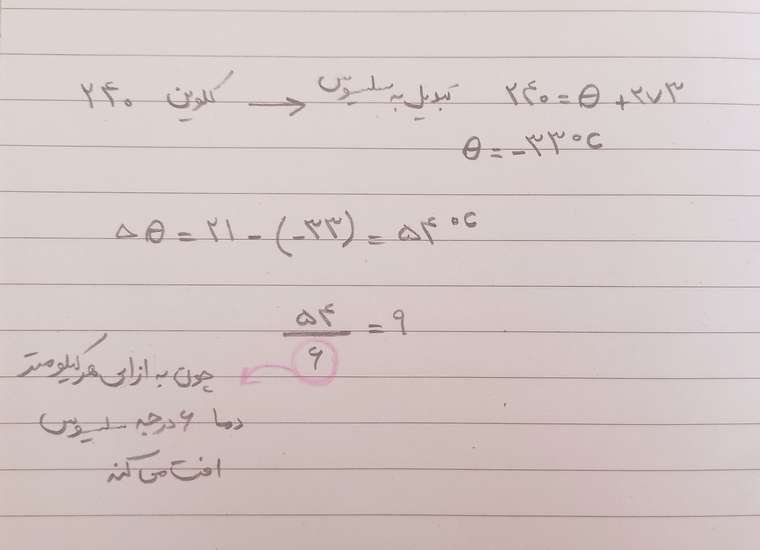 ۲۴۰ کلوین → تبدیل به سلسیوس ۲۴۰ = θ + ۲۷۳
θ = -۳۳°C
Δθ = ۲۱ - (-۳۳) = ۵۴°C
۵۴
۶
= ۹
چون به ازای هر کیلومتر
دما ۶ درجه سلسیوس
افت می‌کند